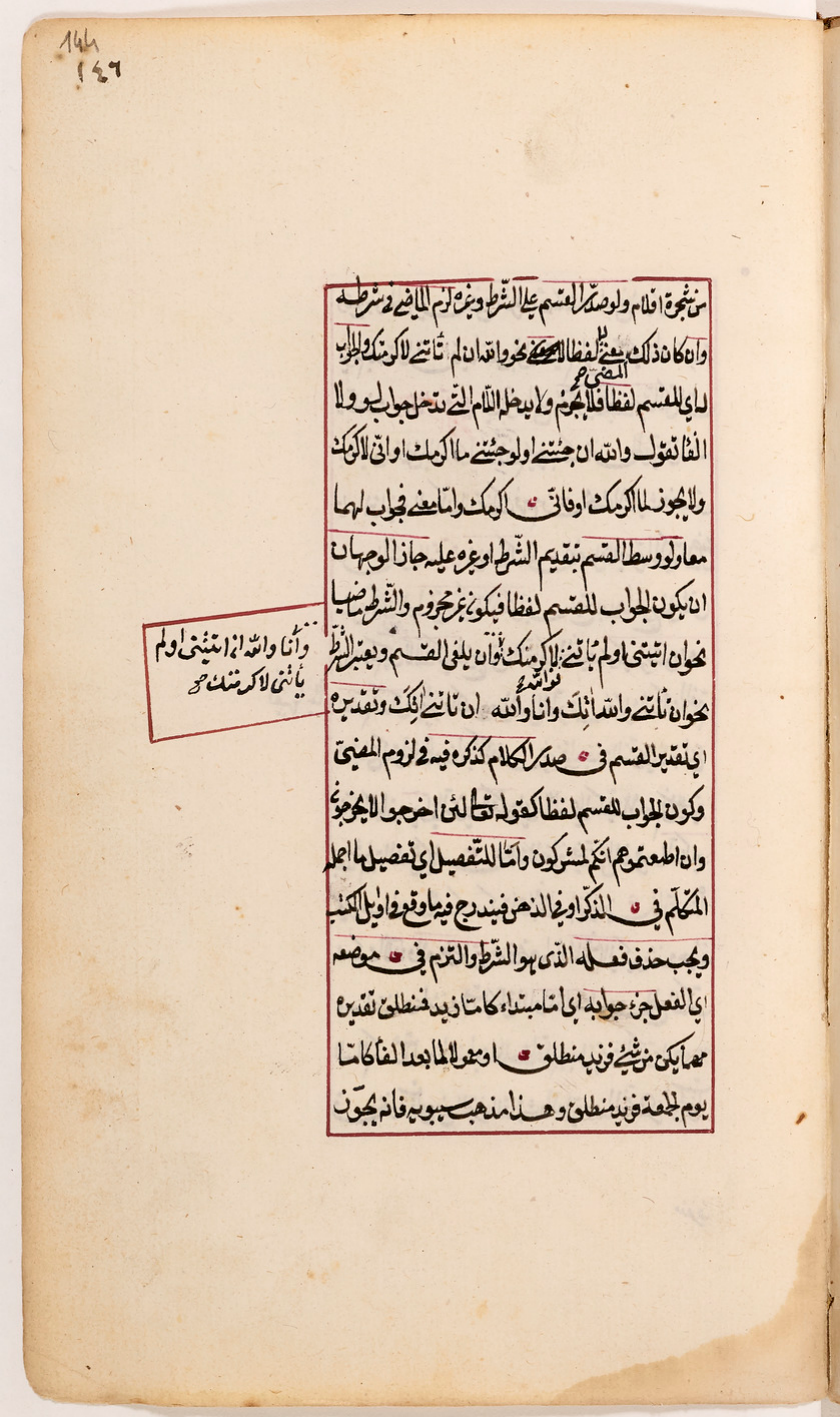 144
١٤٦
من شجرة اقلام ولو صدّر القسم على الشّرط وغيره لزم الماضي في شرطه
وان كان ذلك معنًى لا لفظا نحو والله ان لم تأتني لاكرمنك والجواب
المضيّ صح
له اي للقسم لفظا فلا يجزم ولا يدخله اللّام الّتي تدخل جواب لو ولا
الفا تقول والله ان جئتني او لو جئتني ما اكرمك او اني لاكرمك
ولا يجوز لما اكرمك او فاني اكرمك وامّا معنى فجواب لهما
معا ولو وسط القسم بتقديم الشّرط او غيره عليه جاز الوجهان
ان يكون الجواب للقسم لفظا فيكون غير مجزوم والشّرط ماضيا
نحو ان اتيتني او لم تاتني لاكرمنك وان يلغى القسم ويعتبر الشّرط
فوالله
وأنا والله ان اتيتني او لم
يأتني لاكرمنك صح
نحو ان تأتني والله اتك وانا والله ان تاتني اتك وتقديره
اي تقدير القسم في صدر الكلام كذكره فيه في لزوم المضيّ
وكون الجواب للقسم لفظا كقوله تعالى لئن اخرجوا لا يخرجون
وان اطعتموهم انكم لمشركون وامّا للتّفصيل اي تفصيل ما اجمله
المتكلّم في الذكر او في الذهن فيندرج فيه ما وقع في اوايل الكتب
ويجب حذف فعله الّذى هو الشّرط والتزم في موضعه
اي الفعل جزء جوابه اي امّا مبتداء كامّا زيد فمنطلق تقديره
مهما يكن من شيء فزيد منطلق او معمولا لما بعد الفا كامّا
يوم الجمعة فزيد منطلق وهذا مذهب سيبويه فانه يجوّز